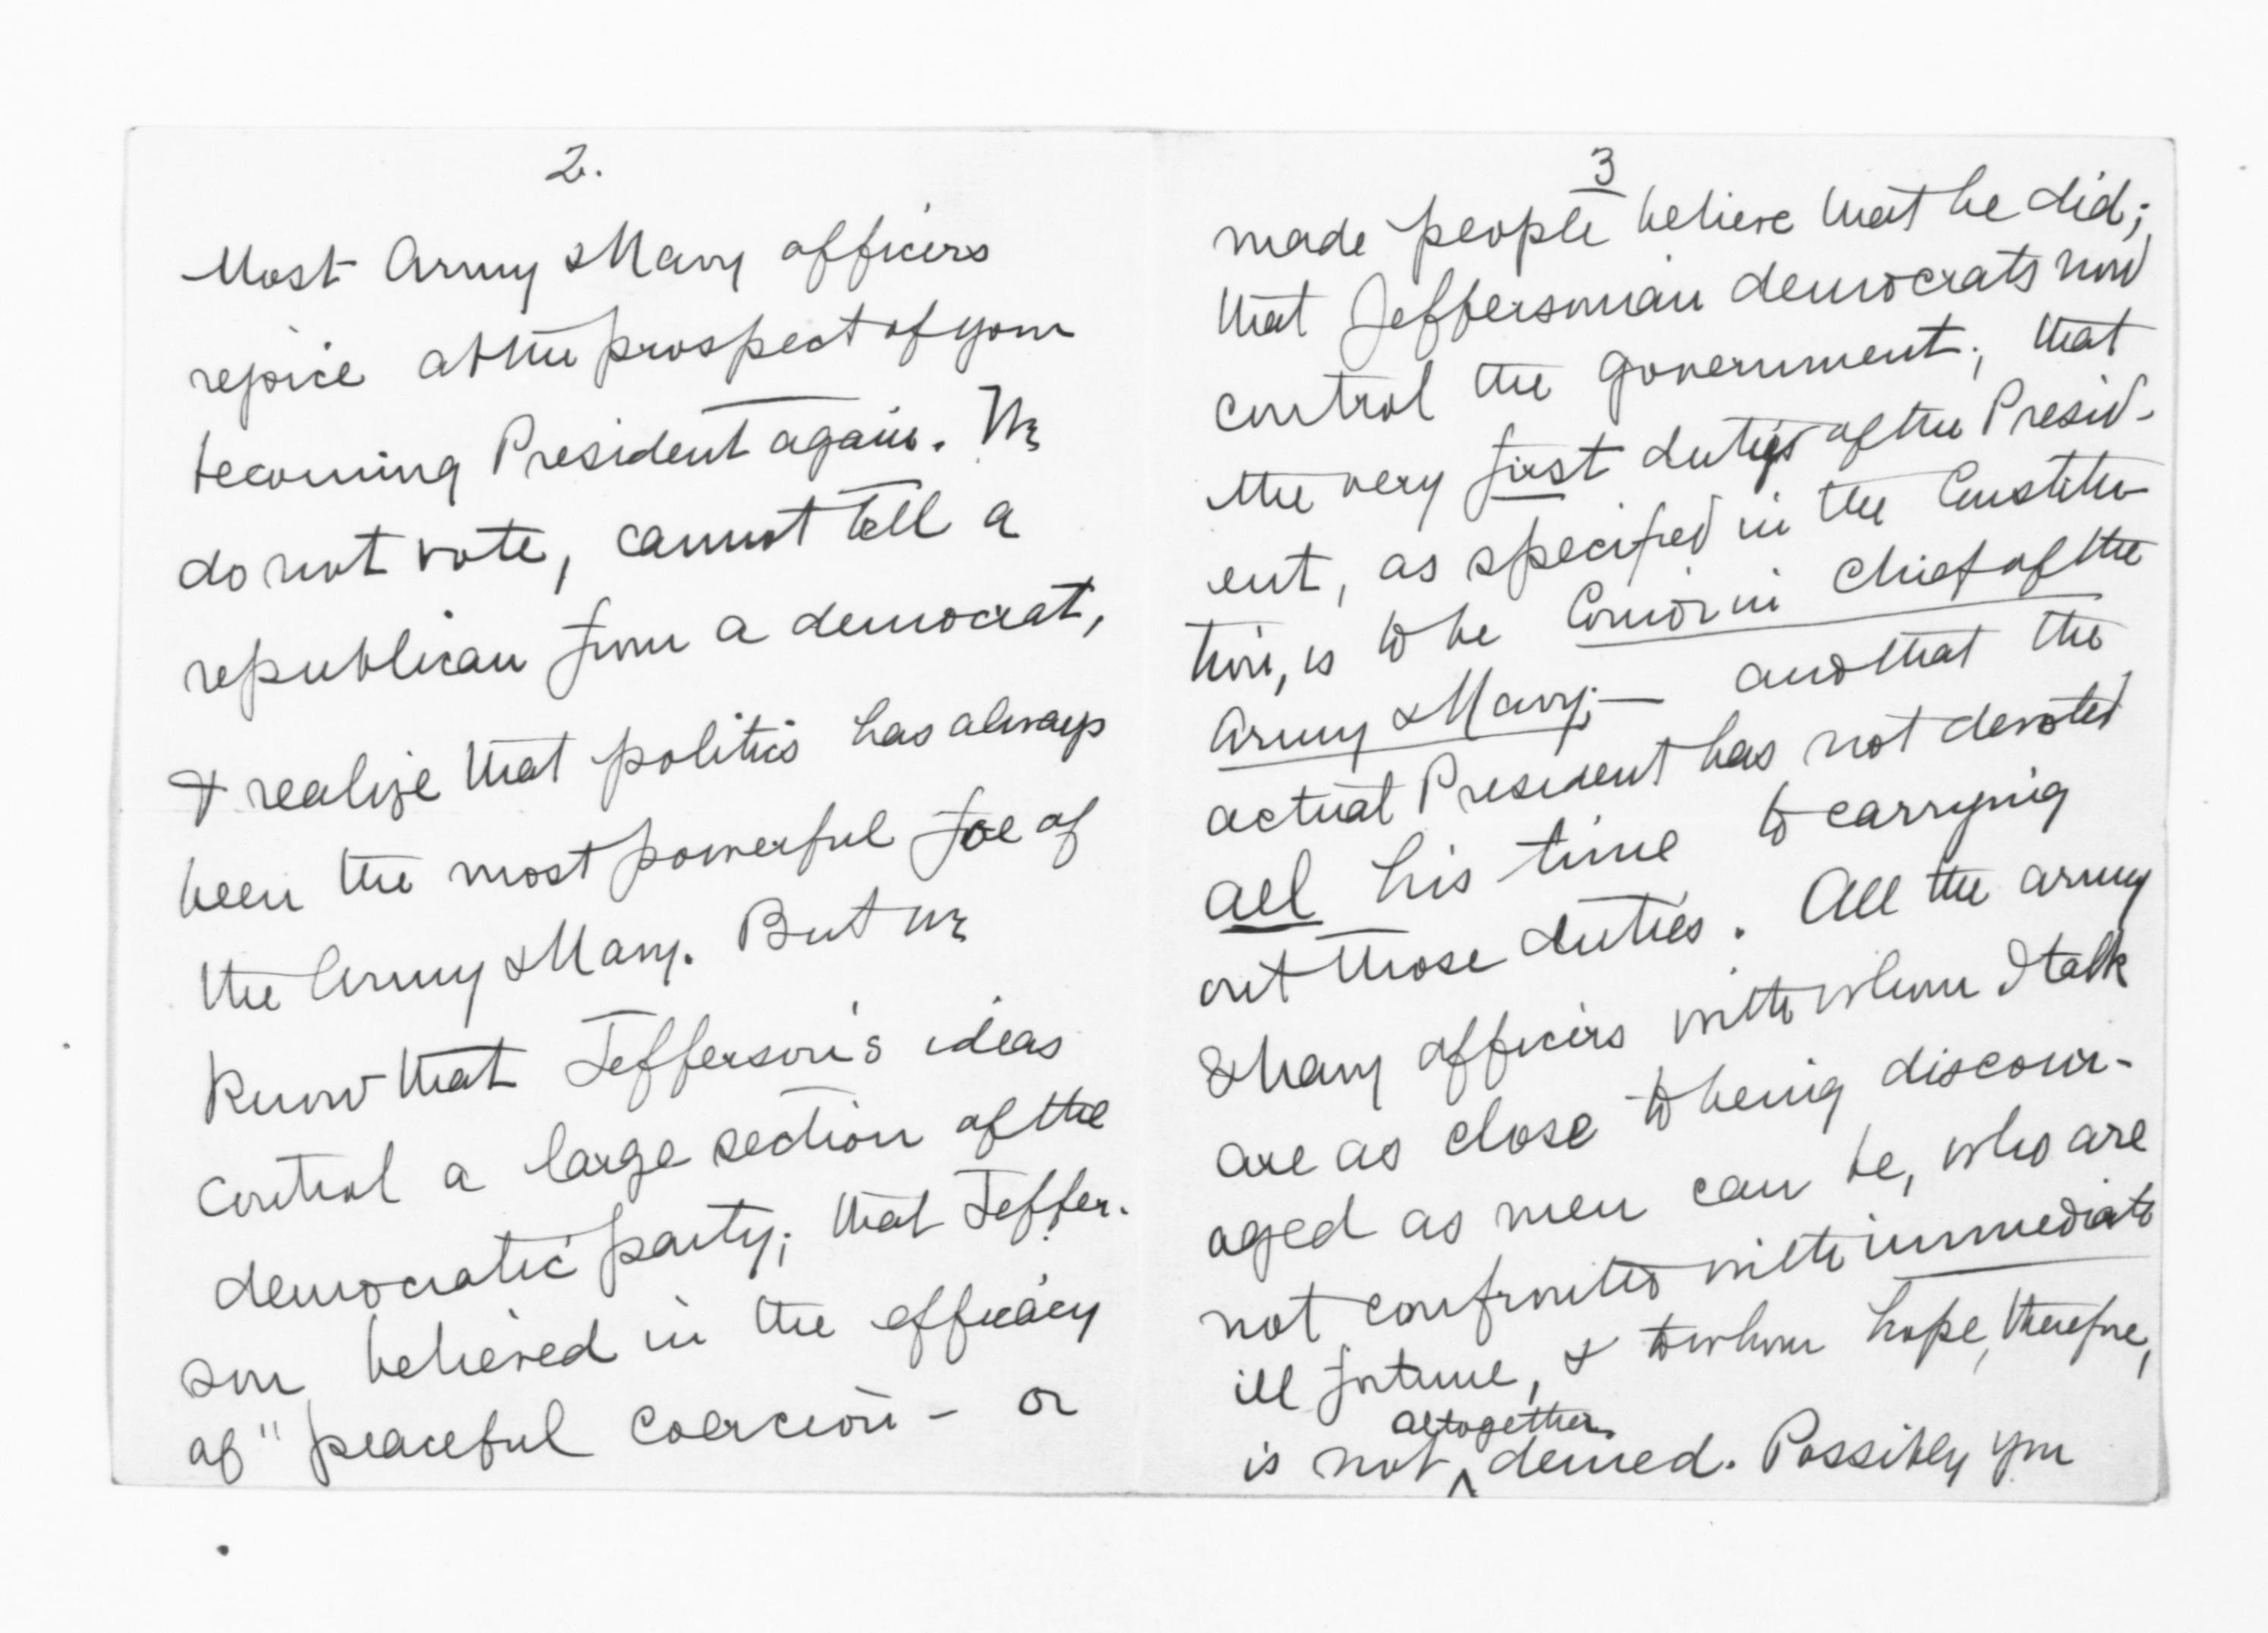 2.
Most Army & Navy officers
rejoice at the prospect of your
becoming President again. We
do not vote, cannot tell a
republican from a democrat,
& realize that politics has always
been the most powerful foe of
the Army & Navy. But we
know that Jefferson's ideas
control a large section of the
democratic party; that Jeffer-
son believed in the efficacy
of "peaceful coercion - or
3
made people believe that he did;
that Jeffersonian democrats now
control the government; that
the very first duties of the Presid-
ent, as specified in the Constitu-
tion, is to be Comdr in Chief of the
Army & Navy; — and that the
actual President has not devoted
all his time to carrying
out those duties. All the army
& Navy officers with whom I talk
are as close to being discour-
aged as men can be, who are
not confronted with immediate
ill fortune, & to whom hope, therefore,
is not altogether denied. Possibly you